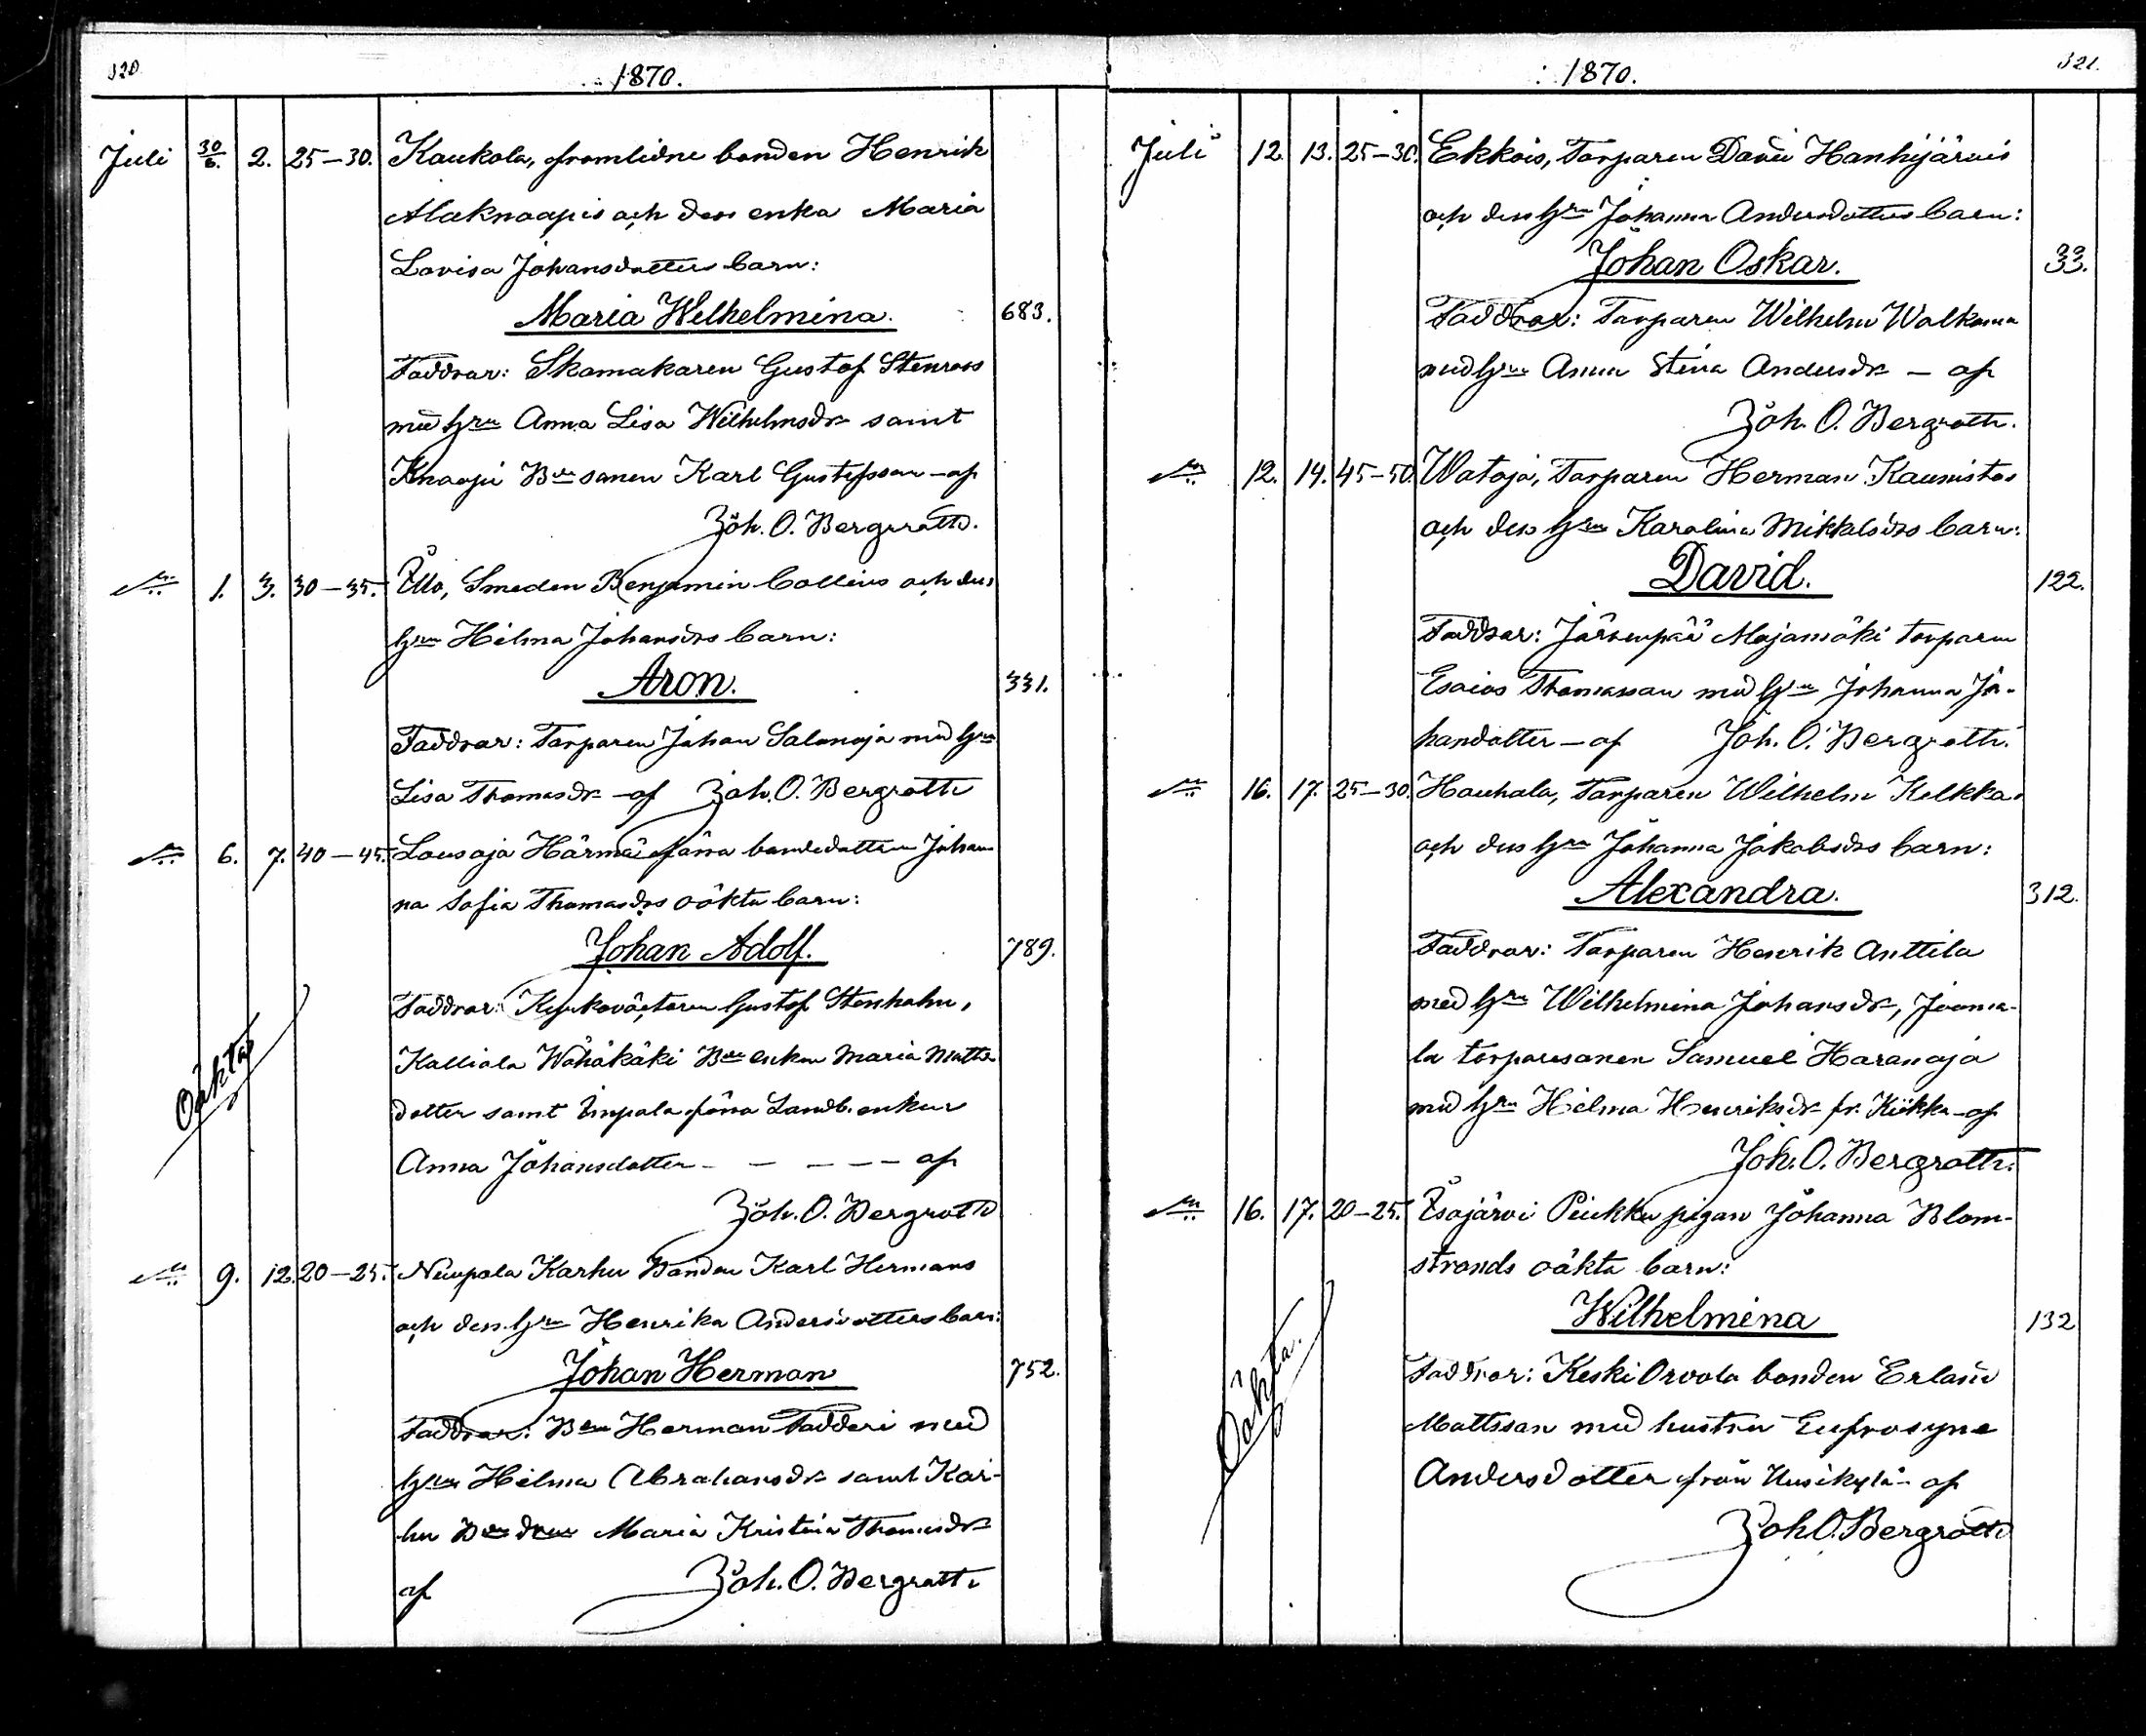 320
1870.
Juli 30/6. 2. 25–30. Kaukola, framlidne bonden Henrik
Alaknaapis och dess enka Maria
Lovisa Johansdotters barn:
Maria Wilhelmina. 683.
Faddrar: Skomakaren Gustaf Stenroos
med hru Anna Lisa Wilhelmsdr samt
Knaapi Bdesonen Karl Gustafsson – af
Joh. O. Bergroth.
1. 3. 30–35. Smeden Benjamin Collins och dess
hru Helma Johansdrs barn:
Aron. 331.
Faddrar: Torparen Johan Salonoja med hru
Lisa Thomasdr – af Joh. O. Bergroth
6. 7. 40–45. Lousaja Härmä bondedottren Johan
na Sofia Thomasdrs oäkta barn:
Johan Adolf. 789.
Faddrar: Kyrkoväktaren Gustaf Stenholm,
Kalliala Wähäkäki enkan Maria Matts
dotter samt Landb. enkan
Anna Johansdotter – – – – – af
Joh. O. Bergroth
Oäkta
9. 12. 20–25. Karhu Bonden Karl Hermans
och dess hru Henrika Andersdotters barn:
Johan Herman 752.
Faddrar: Bden Herman Fadderi med
hru Helma Abrahamsdr samt Kar-
hu Maria Kristina Thomasdr
af Joh. O. Bergroth
321.
1870.
Juli 12. 13. 25–30. Ekkois, Torparen David Hanhijärvis
och dess hru Johanna Andersdotters barn:
Johan Oskar. 33.
Faddrar: Torparen Wilhelm Walkama
med hru Anna Stina Andersdr – af
Joh. O. Bergroth.
12. 14. 45–50. Watoja, Torparen Herman Kaunistos
och dess hru Karolina Mikkelsdrs barn:
David. 122.
Faddrar: Järvenpää Majamäki torparen
Esaias Thomasson med hru Johanna Jo-
hansdotter – af Joh. O. Bergroth.
16. 17. 25–30. Hauhala, Torparen Wilhelm Kelkka
och dess hru Johanna Jakobsdrs barn:
Alexandra. 312.
Faddrar: Torparen Henrik Anttila
med hru Wilhelmina Johansdr, Jooma-
la torparesonen Samuel Haranoja
med hru Helma Henriksdr fr. Kiikka – af
Joh. O. Bergroth.
16. 17. 20–25. Isojärvi pigan Johanna Blom-
strands oäkta barn:
Wilhelmina 132
Faddrar: Keski Orvola bonden Erland
Mattsson med hustru Eufrosyne
Andersdotter från Uusikylä – af
Joh O. Bergroth
Oäkta.